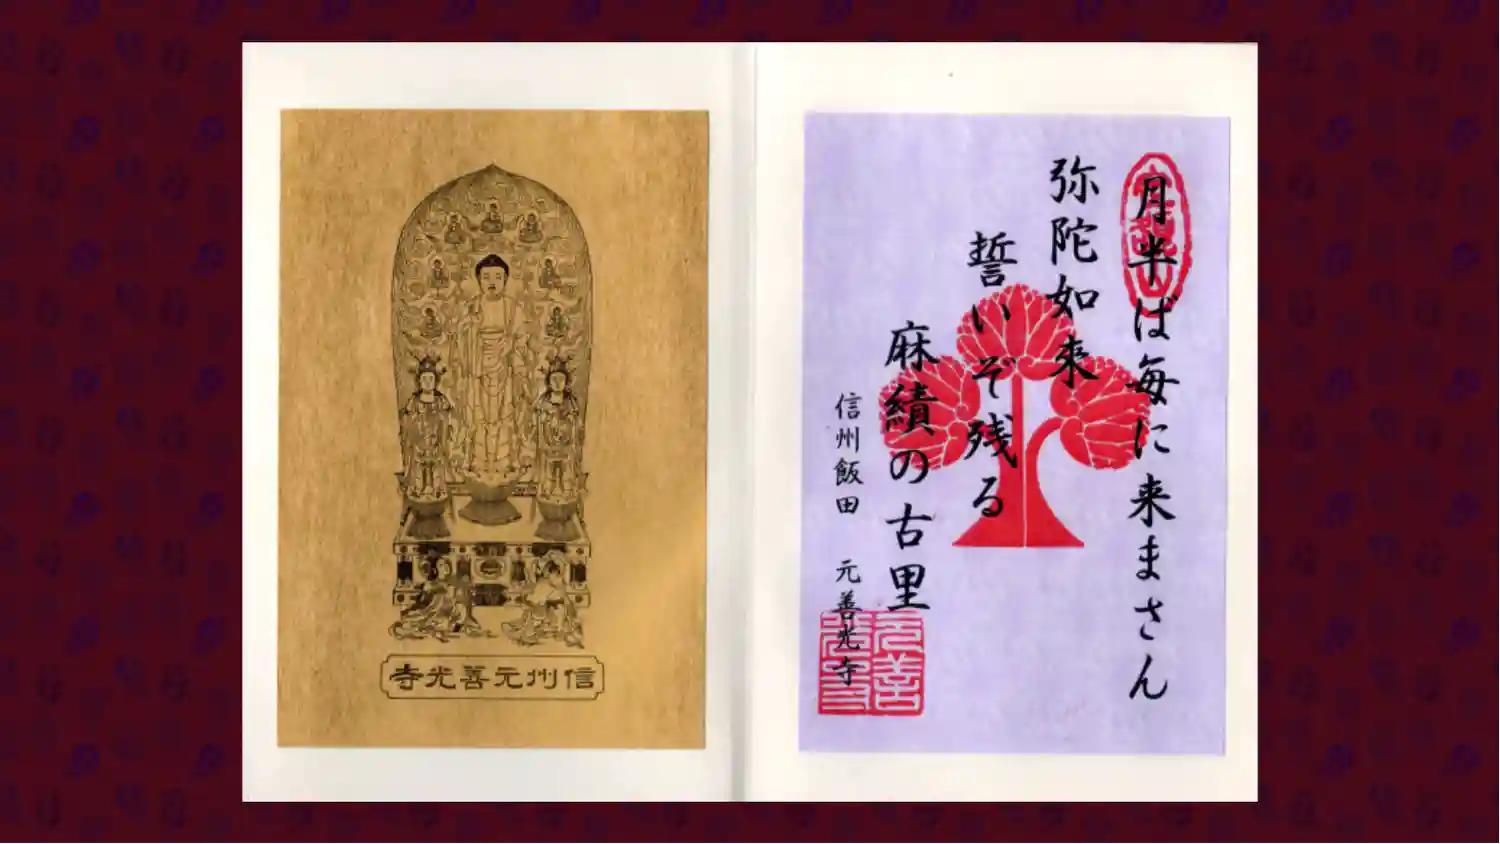 信州元善光寺
月半ば毎に来まさん
弥陀如来
誓いぞ残る
麻績の古里
信州飯田 元善光寺
元善光寺